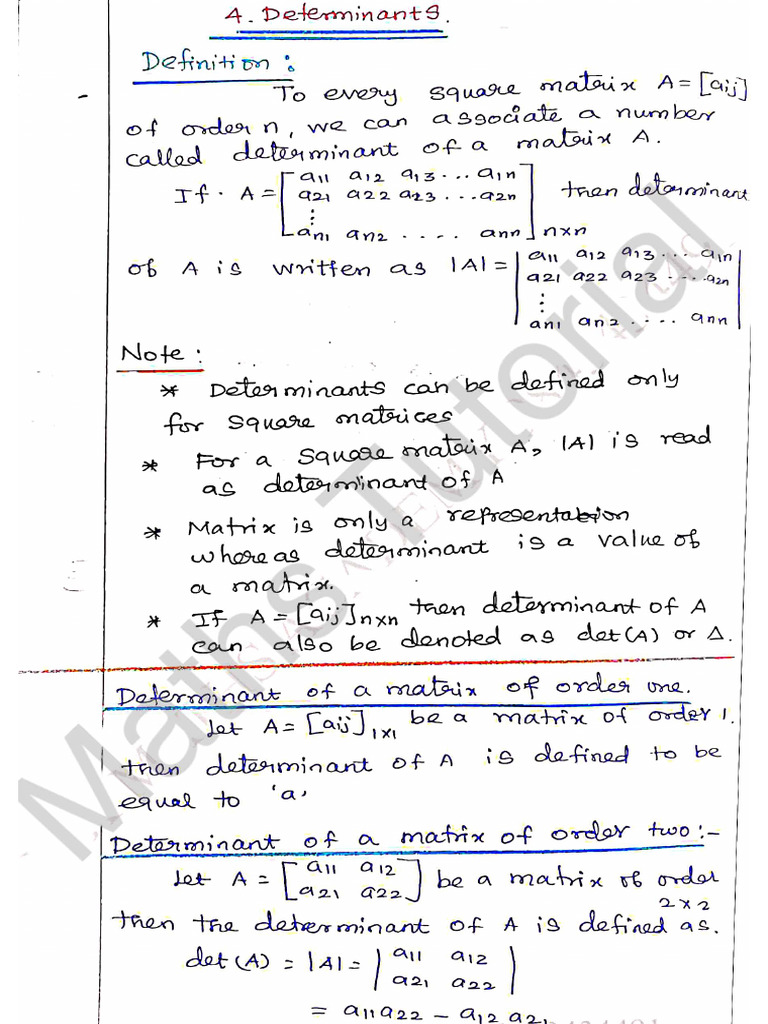 4. Determinants.
Definition:
To every square matrix A = [aij]
of order n, we can associate a number
called determinant of a matrix A.
If. A = [a11 a12 a13 ... a1n
a21 a22 a23 ... a2n
⋮
an1 an2 .... ann]n×n then determinant
of A is written as |A| = |a11 a12 a13 ... a1n
a21 a22 a23 .... a2n
⋮
an1 an2 .... ann|
Note:
* Determinants can be defined only
for square matrices
* For a square matrix A, |A| is read
as determinant of A
* Matrix is only a representation
where as determinant is a value of
a matrix.
* If A = [aij]n×n then determinant of A
can also be denoted as det(A) or Δ.
Determinant of a matrix of order one.
Let A = [aij]1×1 be a matrix of order 1.
then determinant of A is defined to be
equal to 'a'
Determinant of a matrix of order two:-
Let A = [a11 a12
a21 a22] be a matrix of order
2×2
then the determinant of A is defined as.
det(A) = |A| = |a11 a12
a21 a22|
= a11a22 - a12 a21
Maths Tutorial